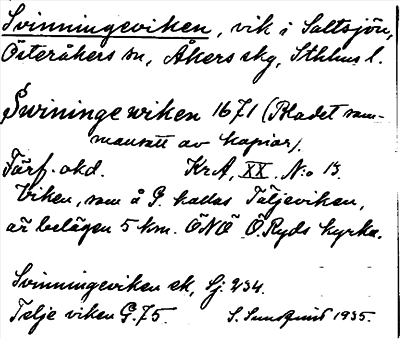 Svinningeviken, vik i Saltsjön,
Österåkers sn, Åkers skg, Sthlms l.
Swininge wiken 1671 (Bladet sam-
mansatt av kopior).
Förf. okd. KrA, XX. N:o 13.
Viken, som å G. kallas Täljeviken,
är belägen 5 km. ÖNÖ Ö. Ryds kyrka.
Svinningeviken ek, Sj. 234.
Telje viken G. 75. S. Sundquist 1935.